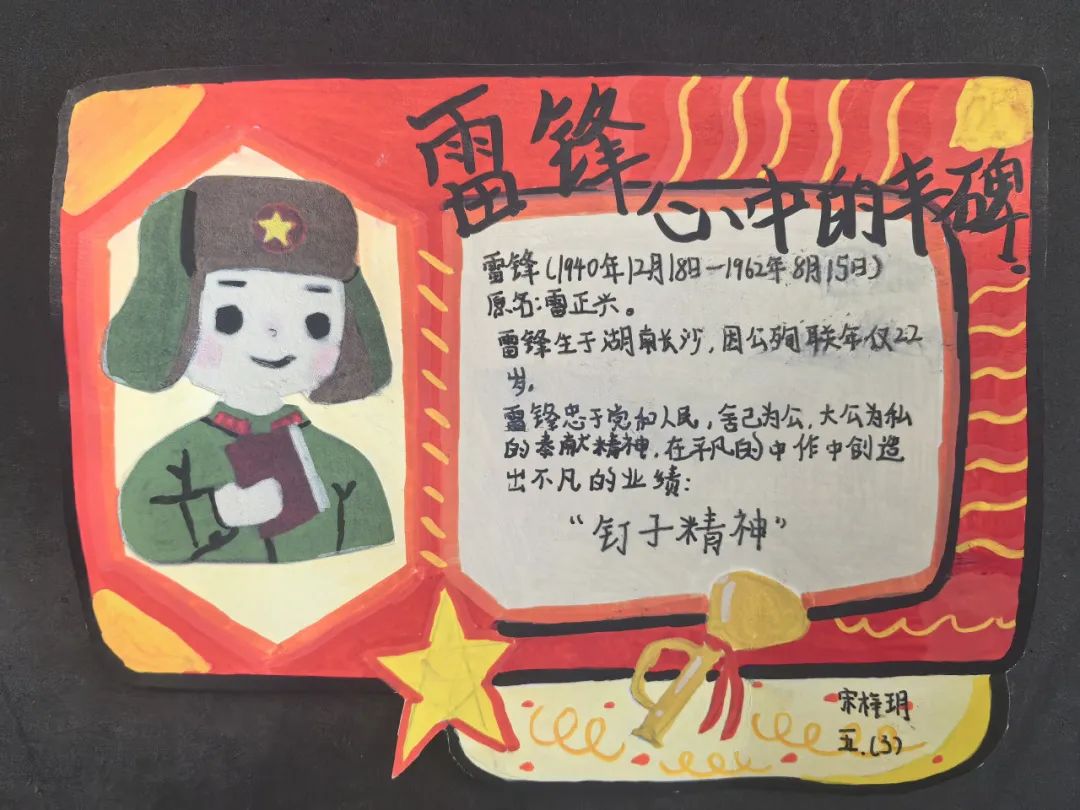 雷锋
心中的丰碑!
雷锋(1940年12月18日—1962年8月15日)
原名:雷正兴。
雷锋生于湖南长沙,因公殉联年仅22
岁。
雷锋忠于党和人民,舍己为公,大公为私
的奉献精神,在平凡的中作中创造
出不凡的业绩:
“钉子精神”
宋梓玥
五.(3)